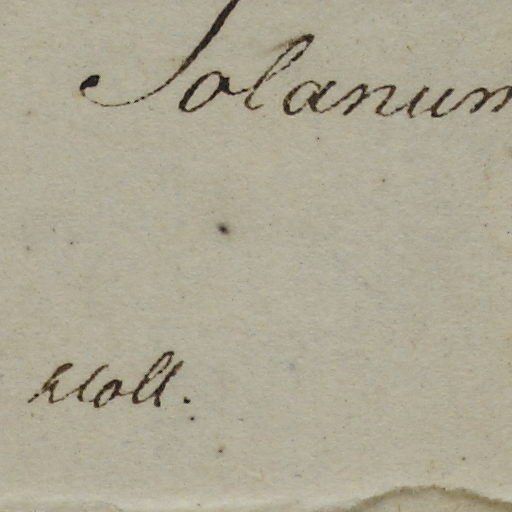 Solanum
Moll.